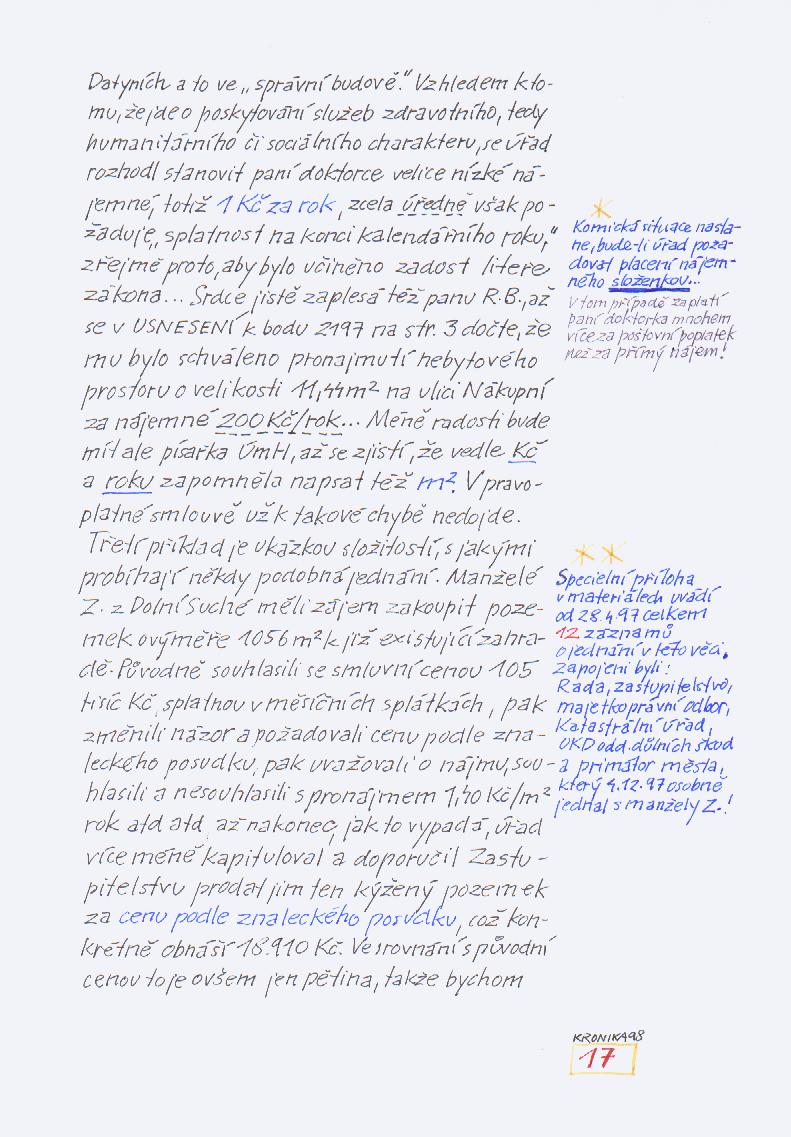 Datyních a to ve „správní budově." Vzhledem k to-
mu, že jde o poskytování služeb zdravotního, tedy
humanitárního či sociálního charakteru, se úřad
rozhodl stanovit paní doktorce velice nízké ná-
jemné, totiž 1 Kč za rok, zcela úředně však po-
žaduje „splatnost na konci kalendářního roku,"
zřejmě proto, aby bylo učiněno zadost liteře
zákona... Srdce jistě zaplesá též panu R.B., až
se v USNESENÍ k bodu 2197 na str. 3 dočte, že
mu bylo schváleno pronajmutí nebytového
prostoru o velikosti 11,44 m² na ulici Nákupní
za nájemné 200 Kč/rok... Méně radosti bude
mít ale písařka ÚmH, až se zjistí, že vedle Kč
a roku zapomněla napsat též m². V pravo-
platné smlouvě už k takové chybě nedojde.
Třetí příklad je ukázkou složitostí, s jakými
probíhají někdy podobná jednání. Manželé
Z. z Dolní Suché měli zájem zakoupit poze-
mek o výměře 1056 m² k již existující zahra-
dě. Původně souhlasili se smluvní cenou 105
tisíc Kč, splatnou v měsíčních splátkách, pak
změnili názor a požadovali cenu podle zna-
leckého posudku, pak uvažovali o nájmu, sou-
hlasili a nesouhlasili s pronájmem 1,40 Kč/m²
rok atd atd, až nakonec, jak to vypadá, úřad
více méně kapituloval a doporučil Zastu-
pitelstvu prodat jim ten kýžený pozemek
za cenu podle znaleckého posudku, což kon-
krétně obnáší 18.910 Kč. Ve srovnání s původní
cenou to je ovšem jen pětina, takže bychom
*
Komická situace nasta-
ne, bude-li úřad poža-
dovat placení nájem-
ného složenkou...
V tom případě zaplatí
paní doktorka mnohem
více za poštovní poplatek
než za přímý nájem!
**
Specielní příloha
v materiálech uvádí
od 28.4.97 celkem
12 záznamů
o jednání v této věci.
Zapojeni byli:
Rada, zastupitelstvo,
majetkoprávní odbor,
Katastrální úřad,
OKD odd. důlních škod
a primátor města,
který 4.12.97 osobně
jednal s manžely Z.!
KRONIKA98
17